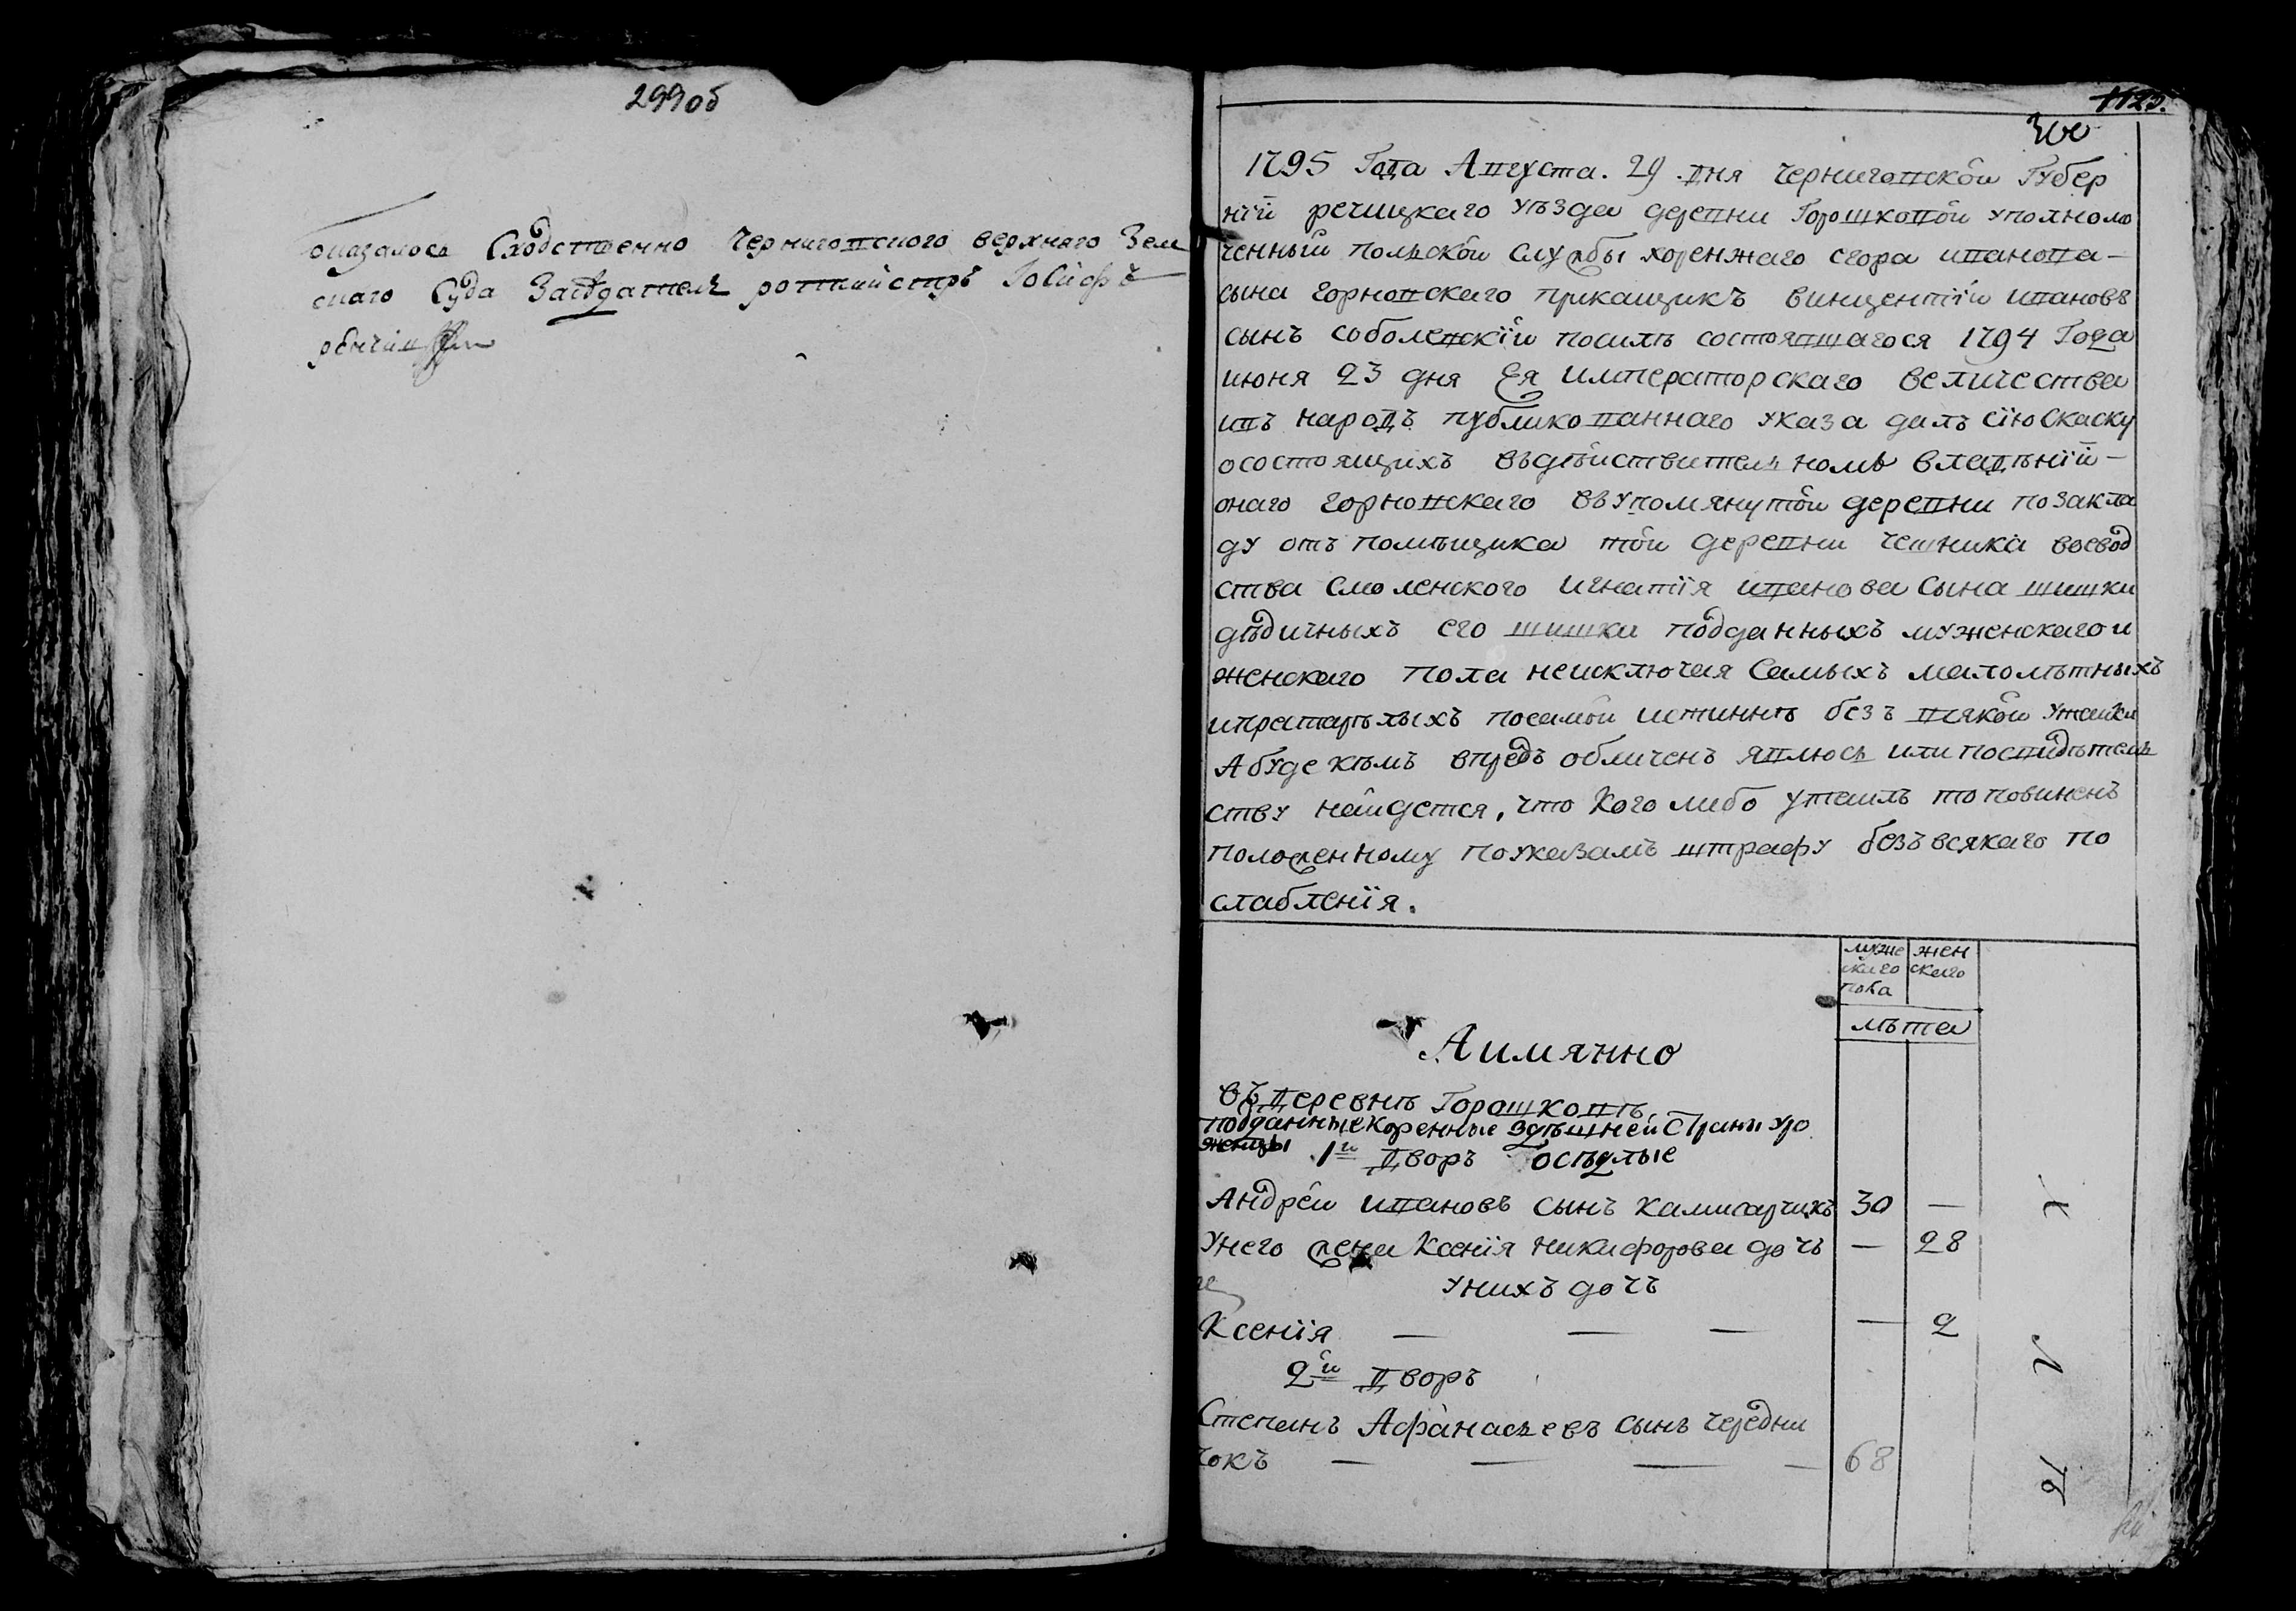 299об
оказалось Сходственно Черниговского верхнего Зем
скаго Суда Заседатель ротмистръ Іосифъ
1123.
300
1795 Года Августа. 29 дня Черниговской Губер
нїи речицкаго уѣзда деревни Горошковой уполномо
ченный польской Службы хоренжаго егора иванова—
сына горновскаго прикащикъ винцентїй ивановъ
сынъ соболевскїй посилѣ состоявшагося 1794 Года
июня 23 дня Ея императорскаго величества
ивъ народъ публикованнаго указа далъ сїю скаску
осостоящихъ въдѣйствительномъ владѣнїи—
онаго горновскаго въупомянутой деревни позакла
ду отъ помѣщика той деревни чешника воевод
ства смоленского игнатїя иванова сына шишки
дѣдичныхъ его шишки подданныхъ муженскаго и
женскаго пола неисключая самыхъ малолѣтныхъ
ипрестарѣлыхъ посамой истиннѣ безъ всякой утайки
А буде кѣмъ впредь обличенъ явлюсь или посвидѣтель
ству найдется, что кого либо утаилъ то повиненъ
положенному поуказамъ штрафу безъ всякаго по
слабленїя.
муже скаго пола | жен скаго
лѣта
Аимянно
въ деревнѣ Горашковѣ
подданные коренные здѣшней страны уро
женцы 1й дворъ осѣдлые
Андрей ивановъ сынъ камисарчикъ 30 —
Унего жена Ксенїя никифорова дочь — 28
унихъ дочь
Ксенїя — — — — 2
2й дворъ
Степанъ Афанасьевъ сынъ чередни
чокъ — — — — 68